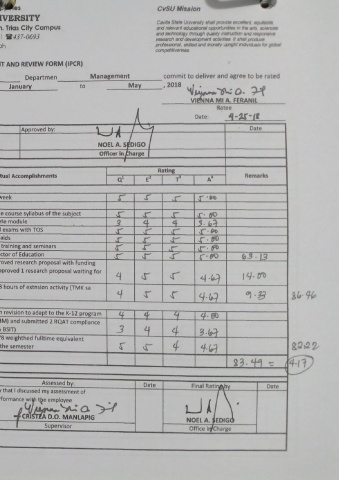 CvSU Mission
IVERSITY
Trias City Campus
☎437-0693
Cavite State University shall provide excellent, equitable
and relevant educational opportunities in the arts, sciences
and technology through quality instruction and responsive
research and development activities. It shall produce
professional, skilled and morally upright individuals for global
competitiveness.
T AND REVIEW FORM (IPCR)
Departmen Management commit to deliver and agree to be rated
January to May , 2018
VIENNA MI A. FERANIL
Ratee
Date: 4-25-18
Approved by: Date
NOEL A. SEDIGO
Officer In Charge
tual Accomplishments Rating Remarks
Q¹ E² T³ A⁴
week 5 5 5 5.00
e course syllabus of the subject 5 5 5 5.00
te module 3 4 4 3.67
exams with TOS 5 5 5 5.00
5 5 5 5.00
training and seminars 5 5 5 5.00
ctor of Education 5 5 5 5.00 63.13
roved research proposal with funding
pproved 1 research proposal waiting for 4 5 5 4.67 14.00
hours of extension activity (TMK sa 4 5 5 4.67 9.33 86.46
n revision to adapt to the K-12 program 4 4 4 4.00
IM) and submitted 2 RQAT compliance
BSIT) 3 4 4 3.67
weighted fulltime equivalent
the semester 5 5 4 4.67 8222
23.49 = 4.17
Assessed by: Date Final Rating by Date
y that I discussed my assessment of
formance with the employee
CRISTEA D.O. MANLAPIG
Supervisor
NOEL A. SEDIGO
Office In Charge